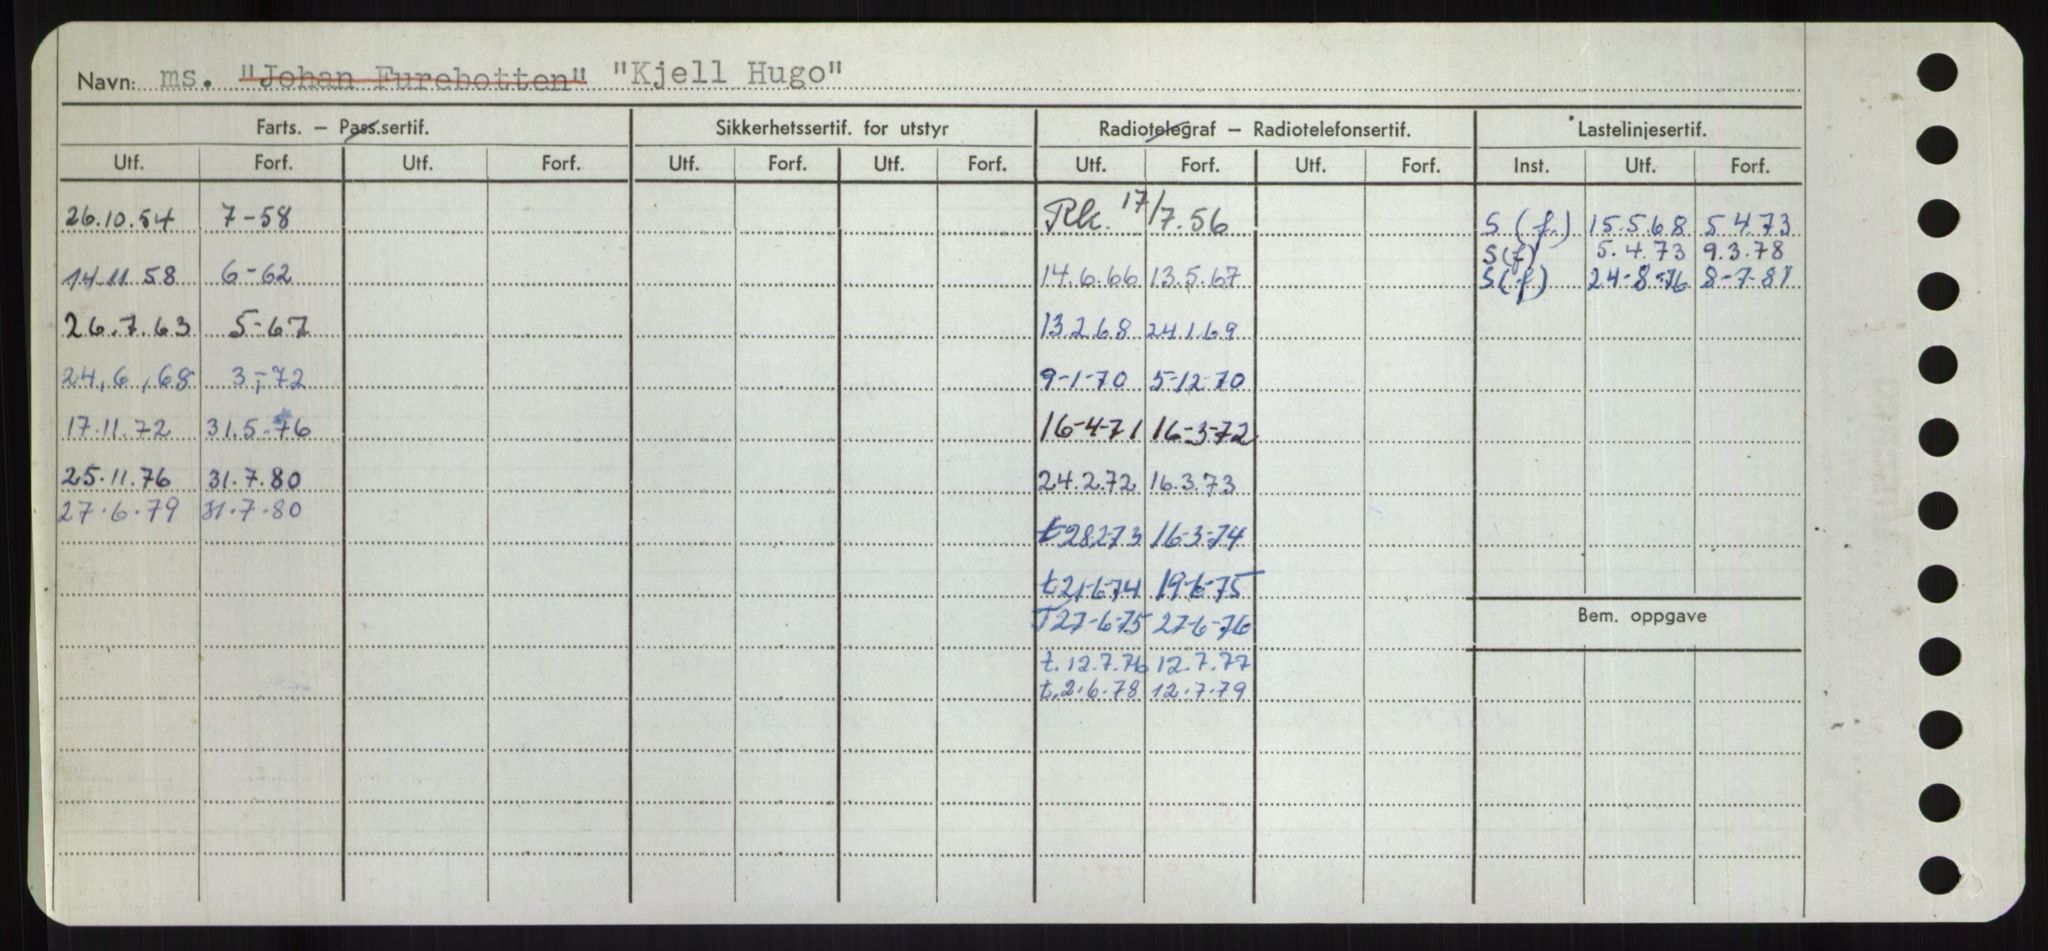 Navn: ms. "Johan Furebotten" "Kjell Hugo"
Farts. – Pass.sertif. Sikkerhetssertif. for utstyr Radiotelegraf – Radiotelefonsertif. Lastelinjesertif.
Utf. Forf. Utf. Forf. Utf. Forf. Utf. Forf. Utf. Forf. Utf. Forf. Inst. Utf. Forf.
26.10.54 7-58 Rk. 17/7.56 S (f.) 15.5.68 5.4.73
S(f) 5.4.73 9.3.78
14.11.58 6-62 14.6.66 13.5.67 S(f) 24-8-76 8-7-81
26.7.63 5-67 13.2.68 24.1.69
24,6,68 3-72 9-1-70 5-12-70
17.11.72 31.5-76 16-4-71 16-3-72
25.11.76 31.7.80 24.2.72 16.3.73
27.6.79 31.7.80
t 28273 16-3-74
t 21-6-74 19-6-75
T 27-6-75 27-6-76
Bem. oppgave
t. 12.7.76 12.7.77
t. 2.6.78 12.7.79